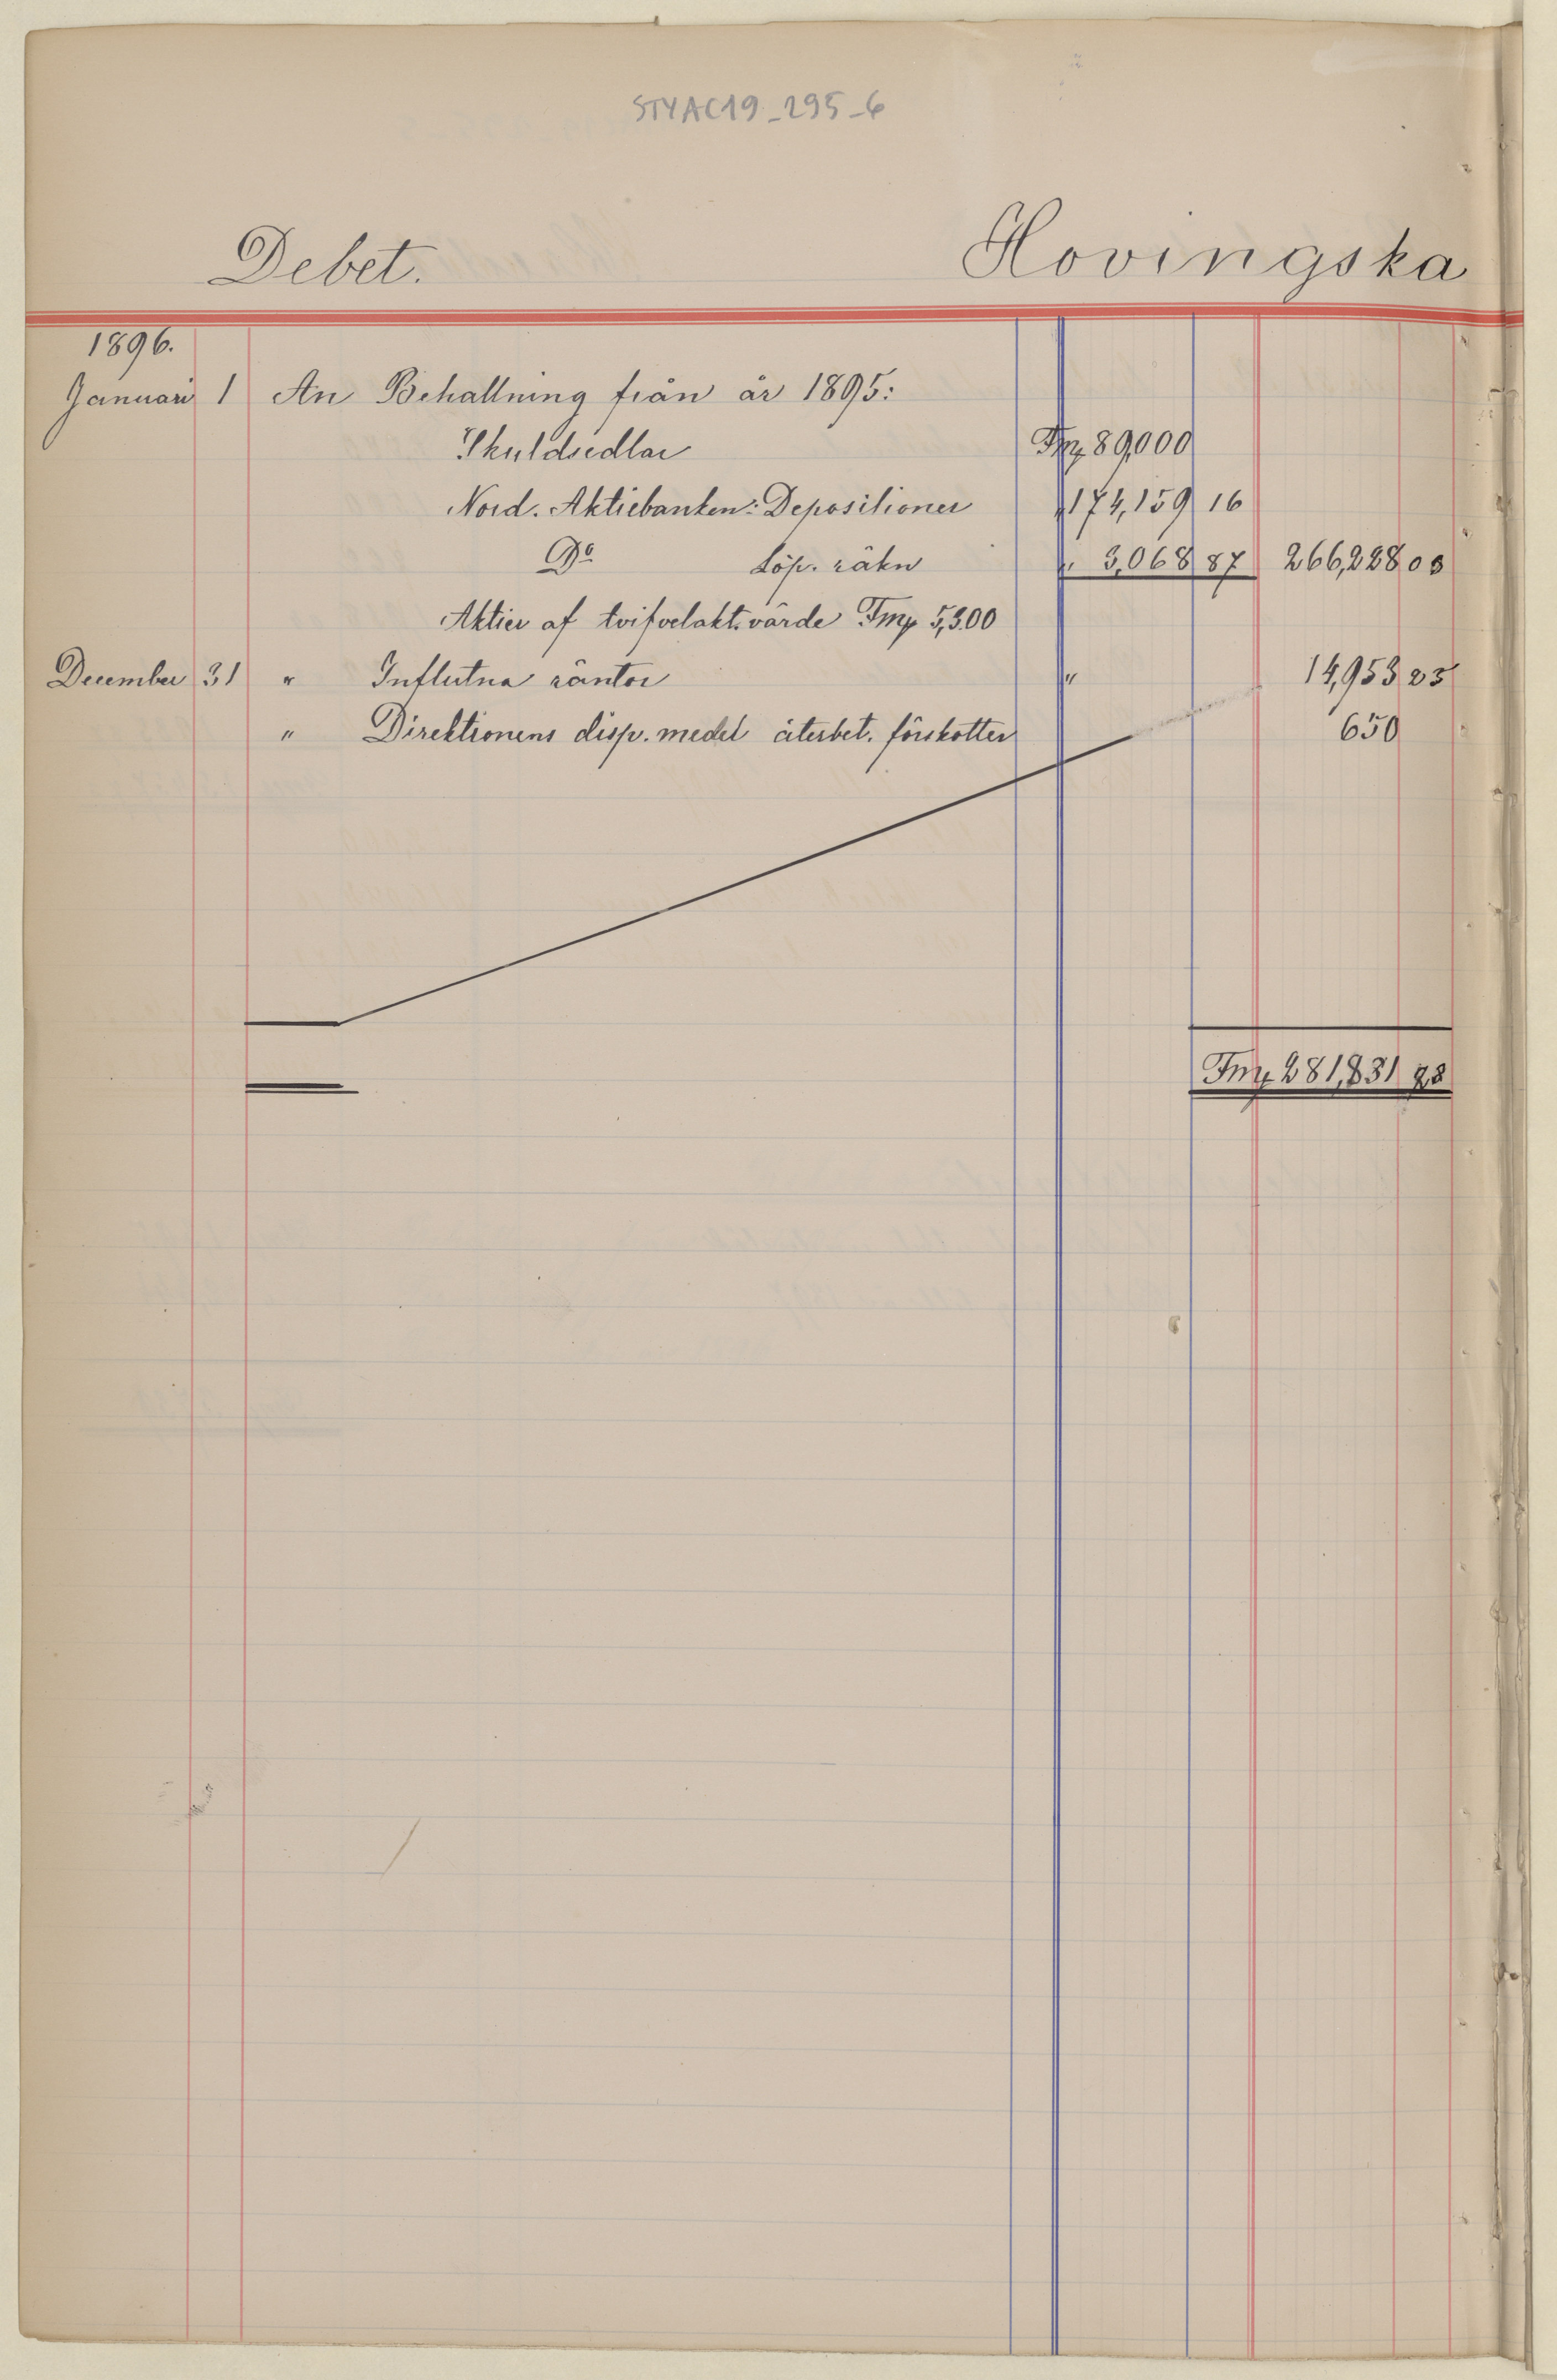 STYAC19_295_6
Debet. Hovingska
1896.
Januari 1 An Behallning från år 1895:
Skuldsedlar Fmk 89,000
Nord. Aktiebanken: Depositioner " 174,159 16
Do Löp. räkn " 3,068 87 266,228 03
Aktier af tvifvelakt. värde Fmk 5,300
December 31 " Influtna räntor " 14,953 25
" Direktionens disp. medel återbet. förskotter 650
Fmk 281,831 28